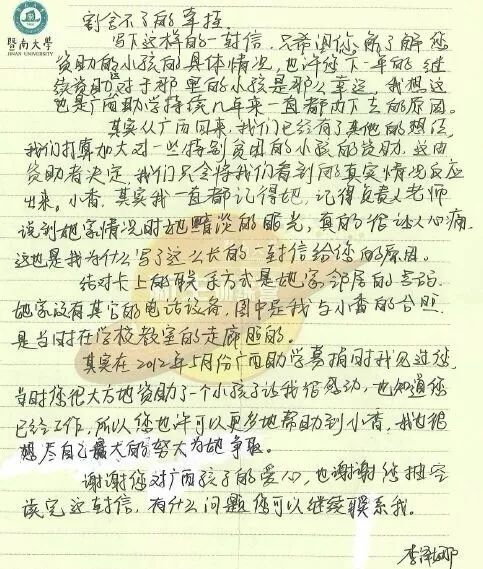 暨南大学
JINAN UNIVERSITY
割舍不了的牵挂
写下这样的一封信，只希望你能了解您
资助的小孩的具体情况，也许您下一年的继
续资助对于那里的小孩是那么幸运，我想这
也是广西助学持续几年来一直都办下去的原因。
其实从广西回来，我们已经有了其他的想法，
我们打算加大对一些特别贫困的小孩的资助，这由
资助者决定，我们只会将我们看到的真实情况反应
出来。小香，其实我一直都记得她，记得负责人老师
说到她家情况时她黯淡的眼光，真的很让人心痛。
这也是我为什么写了这么长的一封信给您的原因。
结对卡上的联系方式是她家邻居的号码，
她家没有其它的电话设备，图中是我与小香的合照
是当时在学校教室的走廊照的。
其实在2012年5月份广西助学募捐时我见过您，
当时您很大方地资助了一个小孩子让我很感动，也知道您
已经工作，所以您也许可以更多地帮助到小香，我也很
想尽自己最大的努力为她争取。
谢谢您对广西孩子的爱心，也谢谢您抽空
读完这封信，有什么问题您可以继续联系我。
李泽娜